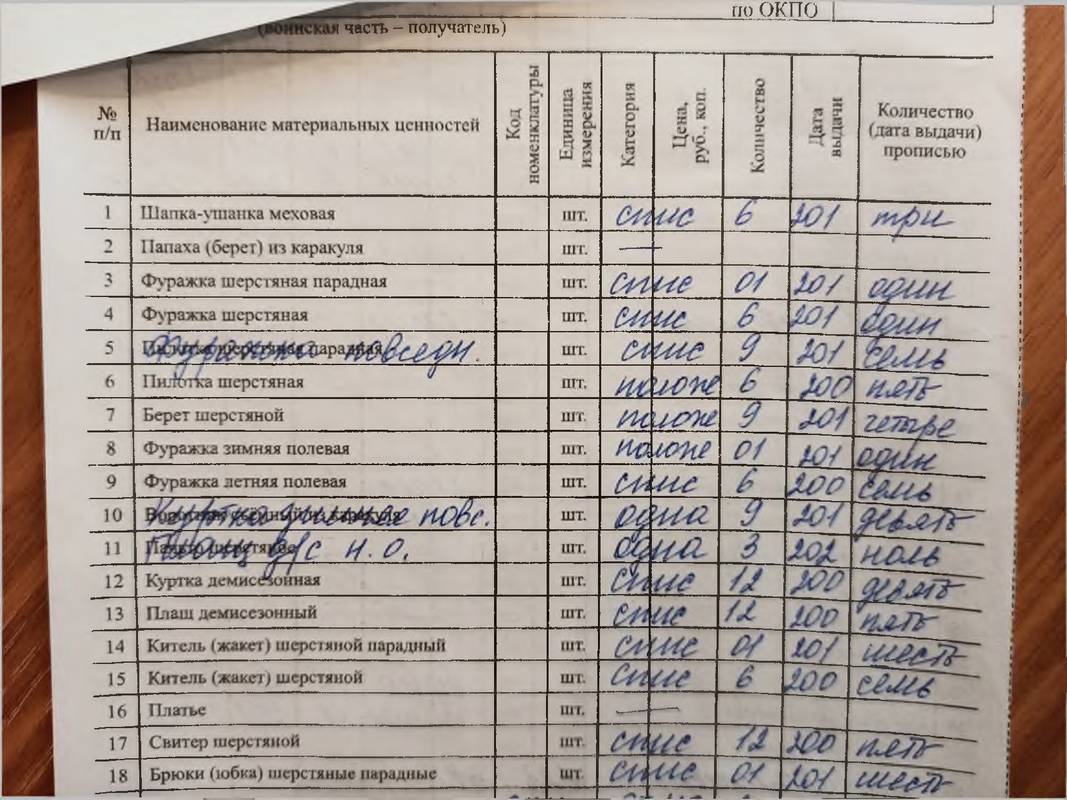 по ОКПО
(воинская часть – получатель)
№ п/п Наименование материальных ценностей Код номенклатуры Единица измерения Категория Цена, руб., коп. Количество Дата выдачи Количество (дата выдачи) прописью
1 Шапка-ушанка меховая шт. спис 6 201 три
2 Папаха (берет) из каракуля шт. —
3 Фуражка шерстяная парадная шт. спис 01 201 один
4 Фуражка шерстяная шт. спис 6 201 один
5 Фуражка повседн. шт. спис 9 201 семь
6 Пилотка шерстяная шт. положе 6 200 пять
7 Берет шерстяной шт. положе 9 201 четыре
8 Фуражка зимняя полевая шт. положе 01 201 один
9 Фуражка летняя полевая шт. спис 6 200 семь
10 Куртка зимняя повс. шт. одна 9 201 девять
11 Плащ д/с н.о. шт. одна 3 202 ноль
12 Куртка демисезонная шт. спис 12 200 девять
13 Плащ демисезонный шт. спис 12 200 пять
14 Китель (жакет) шерстяной парадный шт. спис 01 201 шесть
15 Китель (жакет) шерстяной шт. спис 6 200 семь
16 Платье шт. —
17 Свитер шерстяной шт. спис 12 200 пять
18 Брюки (юбка) шерстяные парадные шт. спис 01 201 шесть